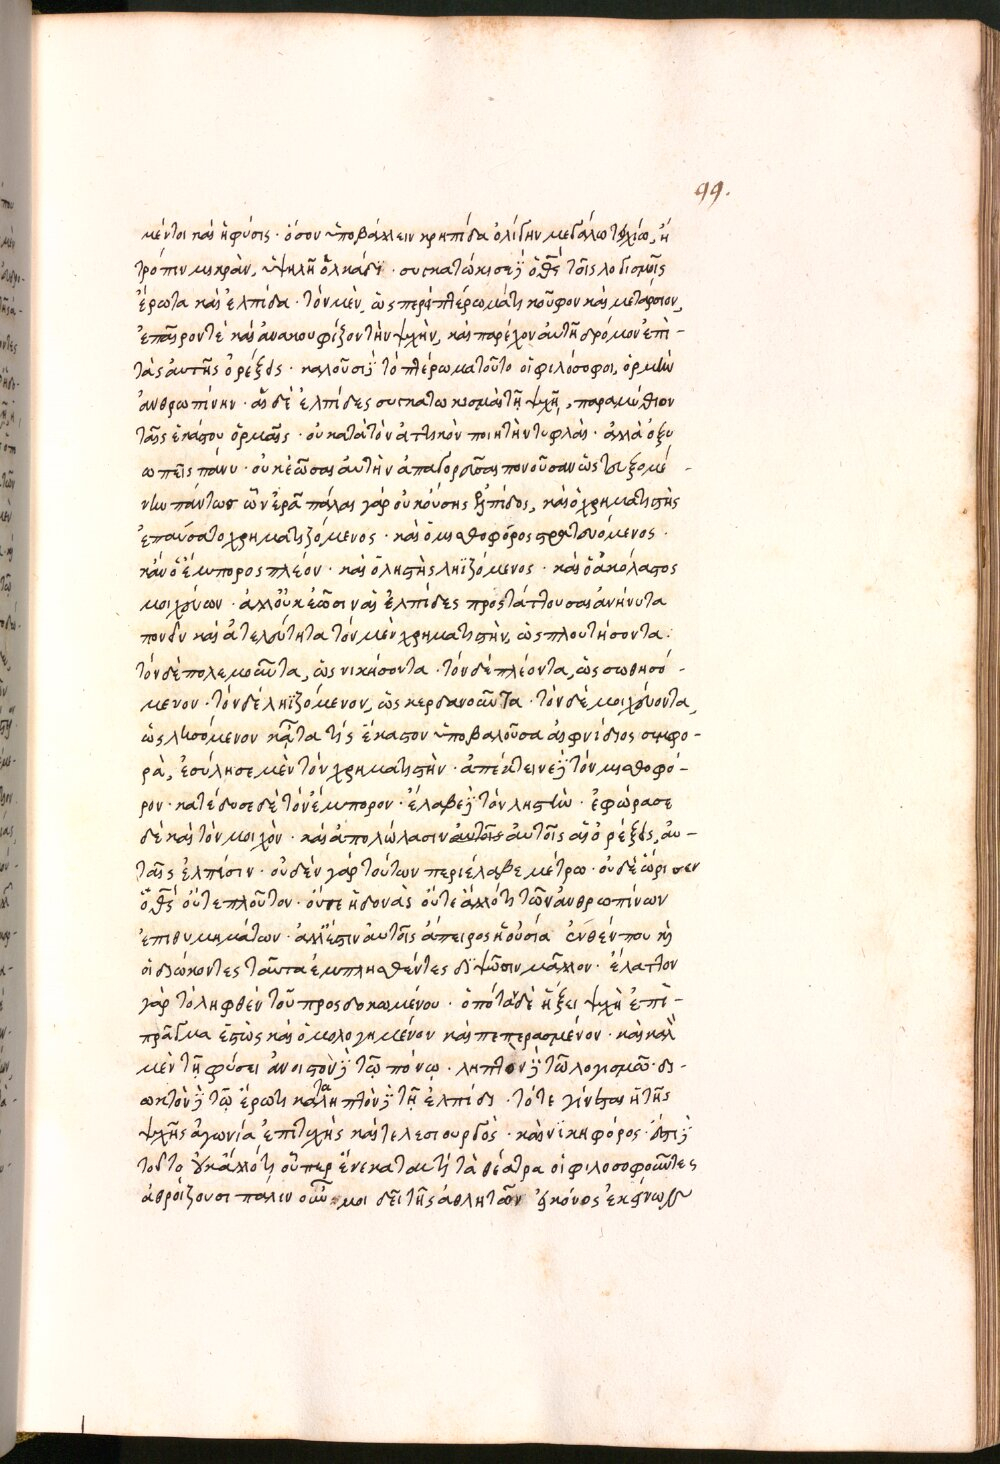 99.
μέντοι καὶ ἡ φύσις · ὅσον ὑποβάλλειν κρηπίδα ὀλίγην μεγάλω τειχίω, ἢ
τρόπιν μικρὰν, ὑψηλῆ ὁλκάδι · συγκατώκισε δὲ ὁ θς τοῖς λογισμοῖς
ἔρωτα καὶ ἐλπίδα · τὸν μὲν, ὥσπερ πτέρωμά τι κοῦφον καὶ μετάρσιον,
ἐπαῖρόν τε καὶ ἀνακουφίζον τὴν ψυχὴν, καὶ παρέχον αὐτῆ δρόμον ἐπὶ -
τὰς αὐτῆς ὀρέξεις · καλοῦσι δὲ τὸ πτέρωμα τοῦτο οἱ φιλόσοφοι, ὁρμὴν
ἀνθρωπίνην · αἱ δὲ ἐλπίδες συγκατωκισμέναι τῆ ψυχῆ, παραμύθιον
ταῖς ἑκάστου ὁρμαῖς · οὐ κατὰ τὸν ἀττικὸν ποιητὴν τυφλαὶ · ἀλλὰ ὀξυ
ωπεῖς πάνυ · οὐκ ἐῶσαι αὐτὴν ἀπαγορεῦσαι πονοῦσαν ὡς τευξομέ -
νην πάντως ὧν ἐρᾶ πάλαι γὰρ οὐκ οὔσης ἐλπίδος, καὶ ὁ χρηματιστὴς
ἐπαύσατο χρηματιζόμενος · καὶ ὁ μισθοφόρος στρατευόμενος ·
κἂν ὁ ἔμπορος πλέον · καὶ ὁ ληστὴς ληϊζόμενος · καὶ ὁ ἀκόλαστος
μοιχεύων · ἀλλ' οὐκ ἐῶσιν αἱ ἐλπίδες προστάττουσαι ἀνήνυτα
πονεῖν καὶ ἀτελεύτητα τὸν μὲν χρηματιστὴν, ὡς πλουτήσοντα ·
τὸν δὲ πολεμοῦντα, ὡς νικήσοντα · τὸν δὲ πλέοντα, ὡς σωθησό -
μενον · τὸν δὲ ληϊζόμενον, ὡς κερδανοῦντα · τὸν δὲ μοιχεύοντα,
ὡς λησόμενον κᾆτα τις ἕκαστον ὑπολαβοῦσα αἰφνίδιος συμφο -
ρὰ, ἐσύλησε μὲν τὸν χρηματιστὴν · ἀπέκτεινε δὲ τὸν μισθοφό -
ρον · κατέδυσε δὲ τὸν ἔμπορον · ἔλαβε δὲ τὸν ληστὴν · ἐφώρασε
δὲ καὶ τὸν μοιχὸν · καὶ ἀπολώλασιν αὐτοῖς αὐτοῖς αἱ ὀρέξεις, αὐ -
ταῖς ἐλπίσιν · οὐδὲν γὰρ τούτων περιέλαβε μέτρω · οὐδὲ ὥρισεν
ὁ θς οὔτε πλοῦτον · οὔτε ἡδονὰς οὔτε ἄλλό τι τῶν ἀνθρωπίνων
ἐπιθυμημάτων · ἀλλ' ἔστιν αὐτοῖς ἄπειρος ἡ οὐσία ἐνθένπου καὶ
οἱ διώκοντες ταῦτα ἐμπλησθέντες διψῶσιν μᾶλλον · ἔλαττον
γὰρ τὸ ληφθὲν τοῦ προσδοκωμένου · ὁπόταν δὲ ἥξει ψυχὴ ἐπὶ -
πρᾶγμα ἑστὼς καὶ ὁμολογημένον καὶ πεπερασμένον · καὶ καλὸν
μὲν τῆ φύσει ἀνοιστὸν δὲ τῷ πόνῳ · ληπτὸν δὲ τῶ λογισμῶ · δι -
ωκτὸν δὲ τῷ ἔρωτι καταληπτὸν δὲ τῇ ἐλπίδι · τότε γίνεται ἡ τῆς
ψυχῆς ἀγωνία ἐπιτυχὴς καὶ τελεσιουργὸς · καὶ νικηφόρος · ἔστι δὲ
τοῦτο οὐκ ἄλλό τι οὗπερ ἕνεκα ταυτὶ τὰ θέατρα οἱ φιλοσοφοῦντες
ἀθροίζουσι πάλιν οὖν μοι δεῖ τῆς ἀθλητῶν εἰκόνος ἐκείνων